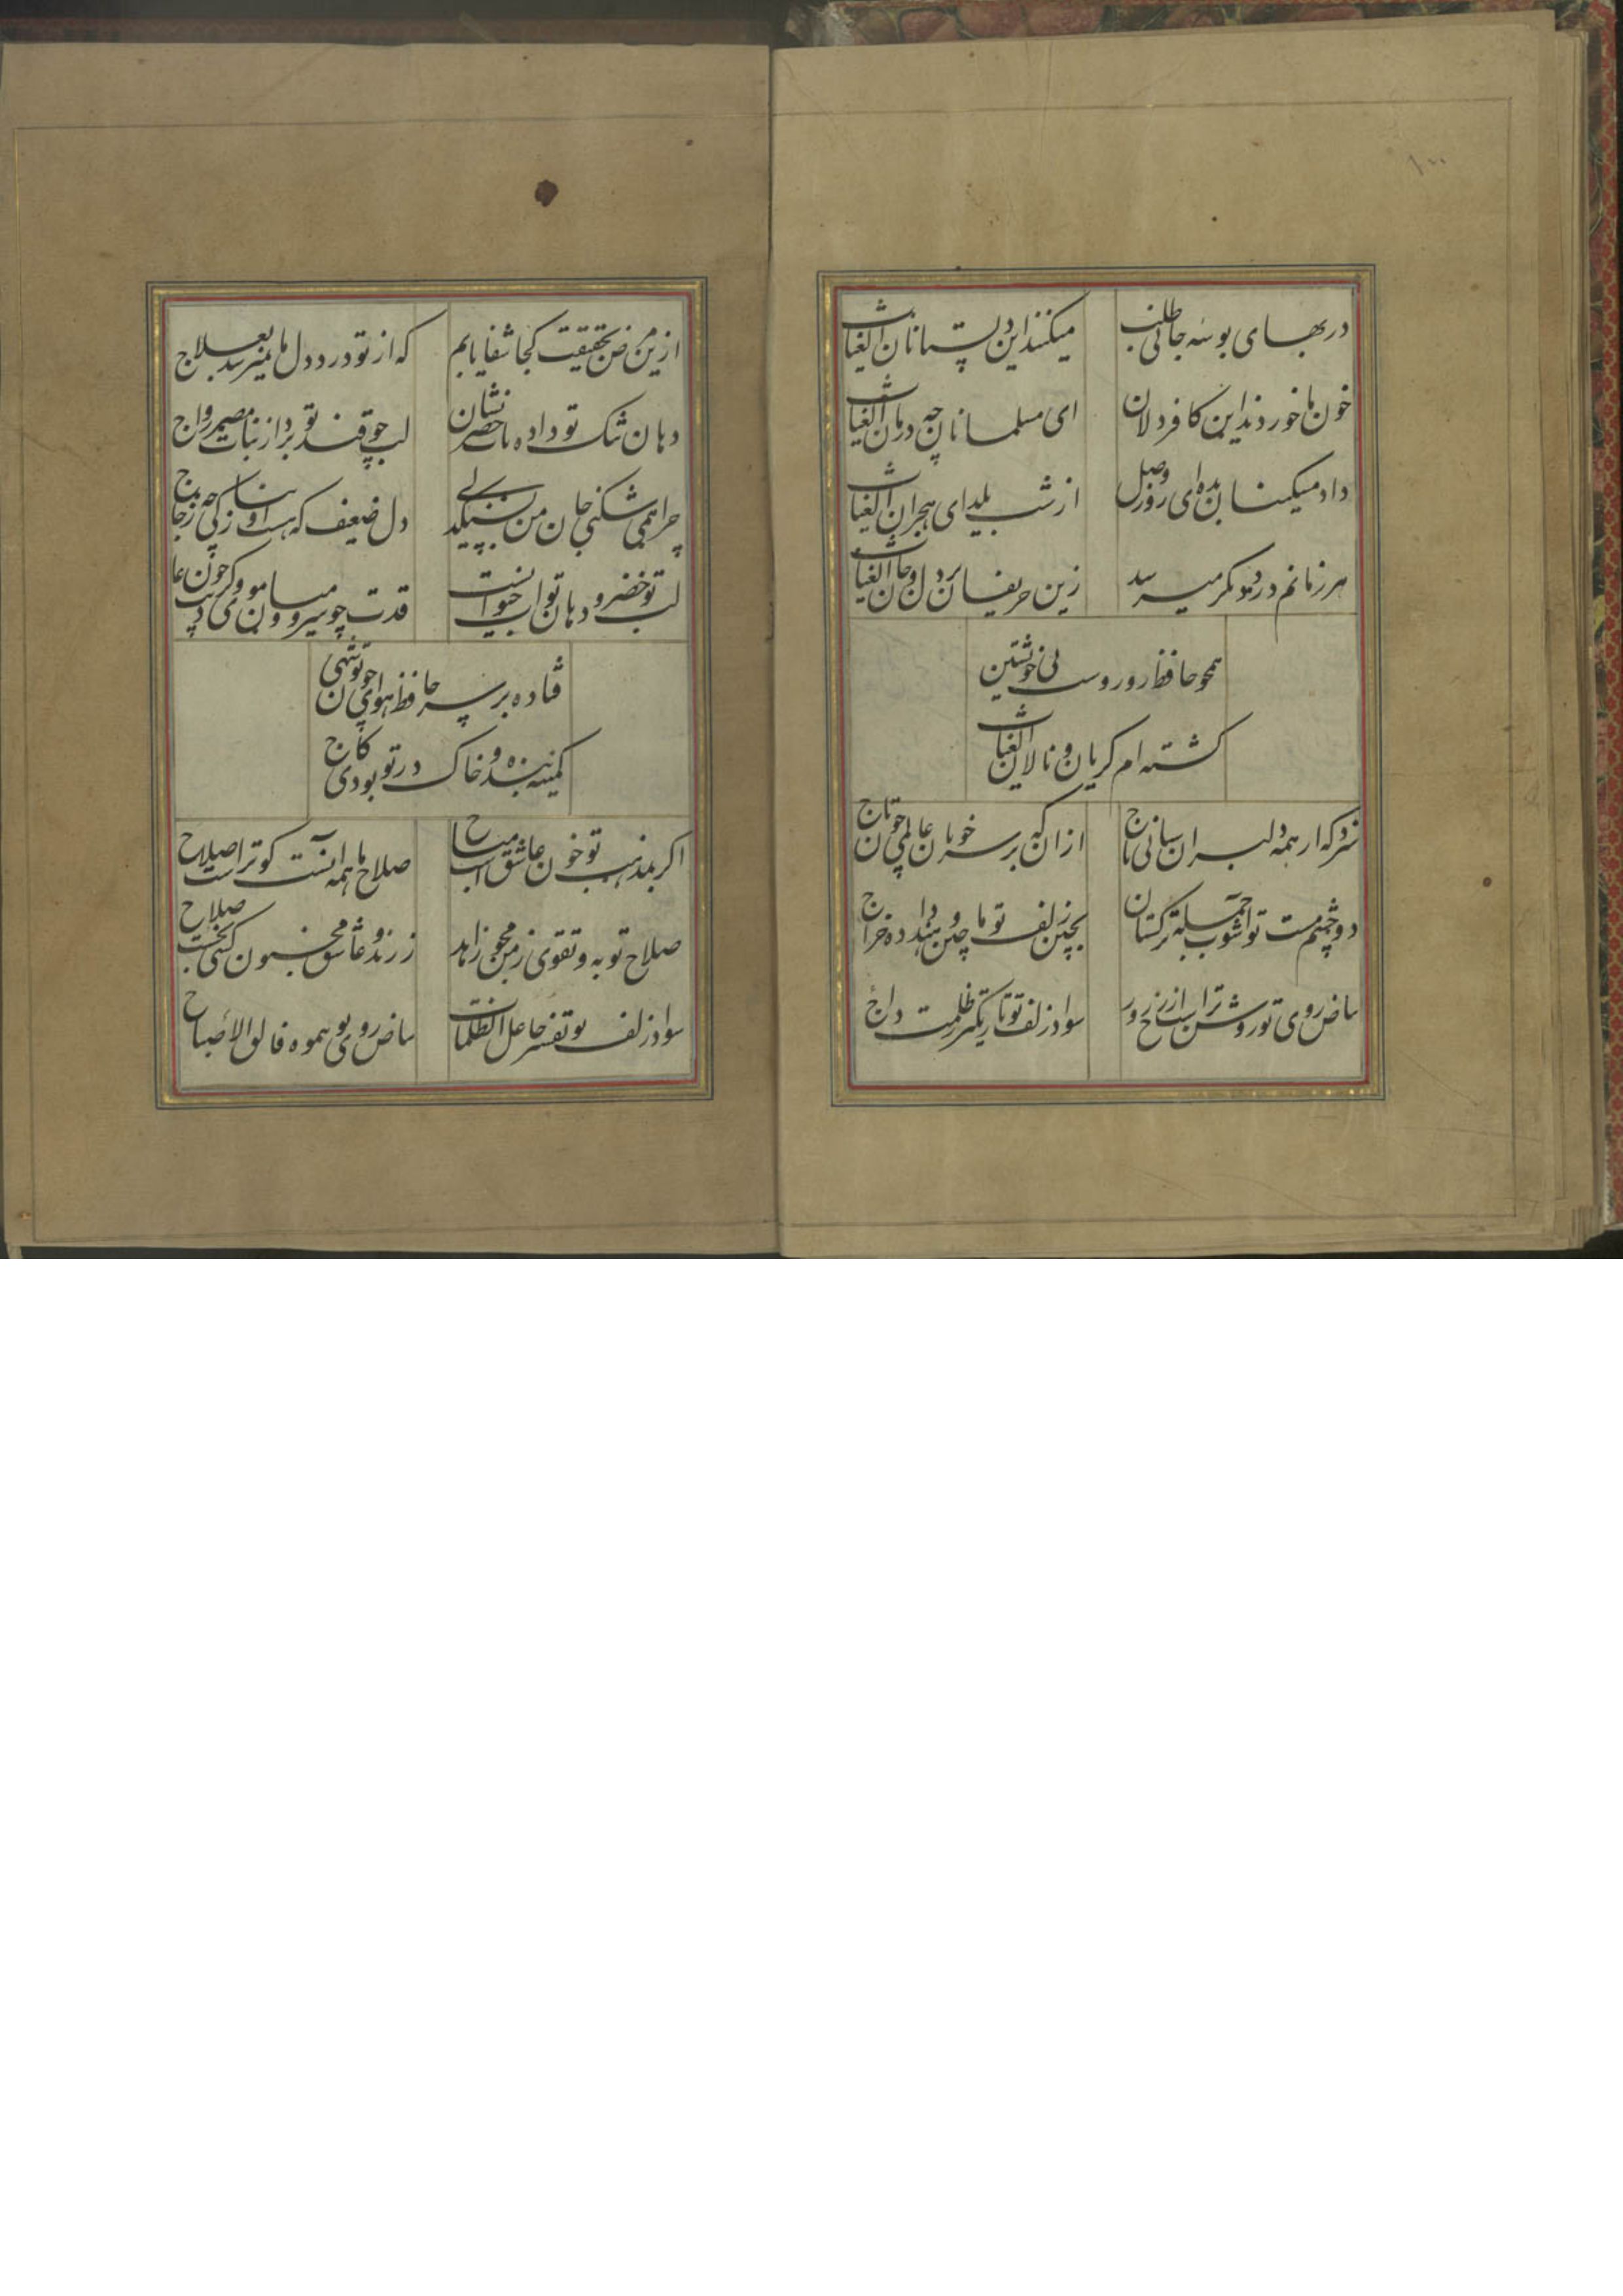 در بهای بوسه جانی طلب میکنند این دلستانان الغیاث
خون ما خوردند این کافر دلان ای مسلمانان چه درمان الغیاث
داد مسکینان بده ای روز وصل از شب یلدای هجران الغیاث
هر زمانم درد دیگر میرسد زین حریفان بر دل و جان الغیاث
همچو حافظ روز و شب بی خویشتن
گشته ام گریان و نالان الغیاث
سزد که از همه دلبران ستانی باج ازان که بر سر خوبان عالمی چون تاج
دو چشم مست تو آشوب جمله ترکستان بچین زلف تو ماچین و هند داده خراج
بیاض روی تو روشن تر است از رخ روز سواد زلف تو تاریکتر ز ظلمت داج
ازین مرض بحقیقت کجا شفا یابم که از تو درد دل ما نمیرسد بعلاج
دهان تنک تو داده به خضر نشان لب چو قند تو برد از نبات مصر رواج
چرا همی شکنی جان من ز سنگ دلی دل ضعیف که هست او بنازکی چو زجاج
لب تو خضر و دهان تو آب حیوانست قدت چو سرو و میان موی و گردنت چون عاج
فتاده بر سر حافظ هوای چون تو شهی
کمینه بنده و خاک در تو بودی کاج
اکر بمذهب تو خون عاشق است مباح صلاح ما همه آنست کو تراست صلاح
صلاح و توبه و تقوی ز من مجو زاهد ز رند و عاشق و مجنون کسی نجست صلاح
سواد زلف تو تفسیر جاعل الظلمات بیاض روی تو همچو فالق الاصباح